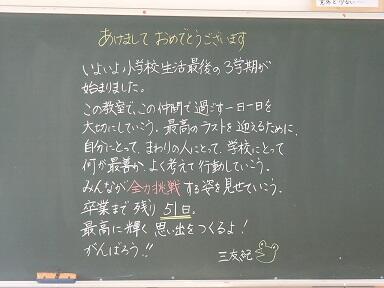 あけまして おめでとうございます
いよいよ小学校生活最後の3学期が
始まりました。
この教室で、この仲間で過ごす一日一日を
大切にしていこう。最高のラストを迎えるために、
自分にとって、まわりの人にとって、学校にとって
何が最善か、よく考えて行動していこう。
みんなが全力挑戦する姿を見せていこう。
卒業まで残り 51日。
最高に輝く思い出をつくるよ!
がんばろう!!
三友紀